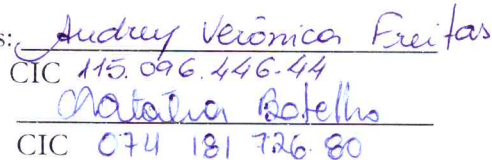 s: Audrey Verônica Freitas
CIC 115.096.446-44
Natalia Botelho
CIC 074 181 726.80